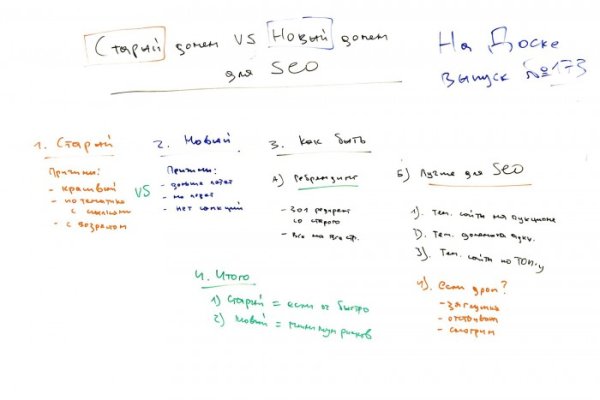 Старый домен VS Новый домен
для SEO
На Доске
выпуск №173
1. Старый
Причины:
- красивый
- по тематике
с ссылками
- с возрастом
VS
2. Новый
Причины:
- дольше
- не
- нет санкций
3. Как быть
А) Ребрендинг
- 301 редирект
со старого
- Все на все стр.
Б) Лучше для SEO
1). Тем. сайты на аукционе
2). Тем. домена
3). Тем. сайты по ТОП-у
4). если дроп?
- заглушка
- отстоять
- смотрим
4. Итого
1) Старый = если оч быстро
2) Новый = минимум рисков